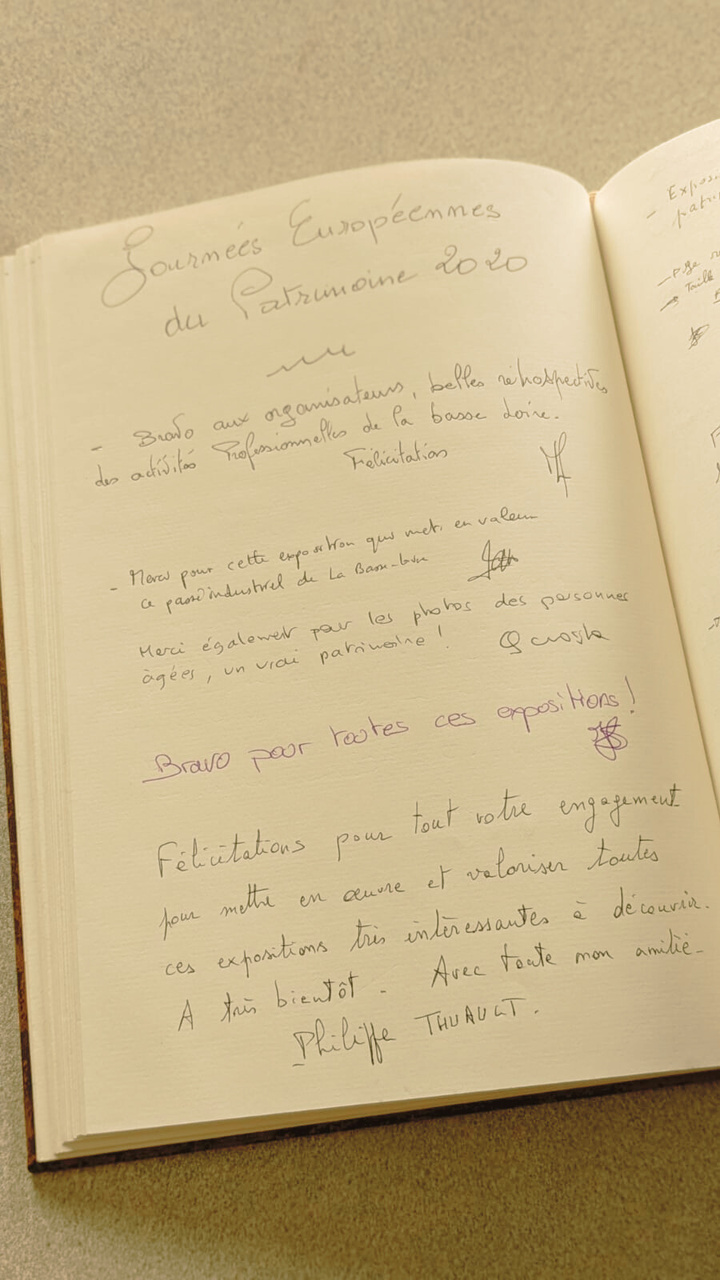 Journées Européennes
du Patrimoine 2020
- Bravo aux organisateurs, belles rétrospectives
des activités Professionnelles de la basse Loire.
Félicitation
- Merci pour cette exposition qui met en valeur
ce passé industriel de La Basse-Loire
Merci également pour les photos des personnes
âgées, un vrai patrimoine !
Bravo pour toutes ces expositions !
Félicitations pour tout votre engagement
pour mettre en œuvre et valoriser toutes
ces expositions très intèressantes à découvrir.
A très bientôt. Avec toute mon amitié.
Philippe THUAULT.